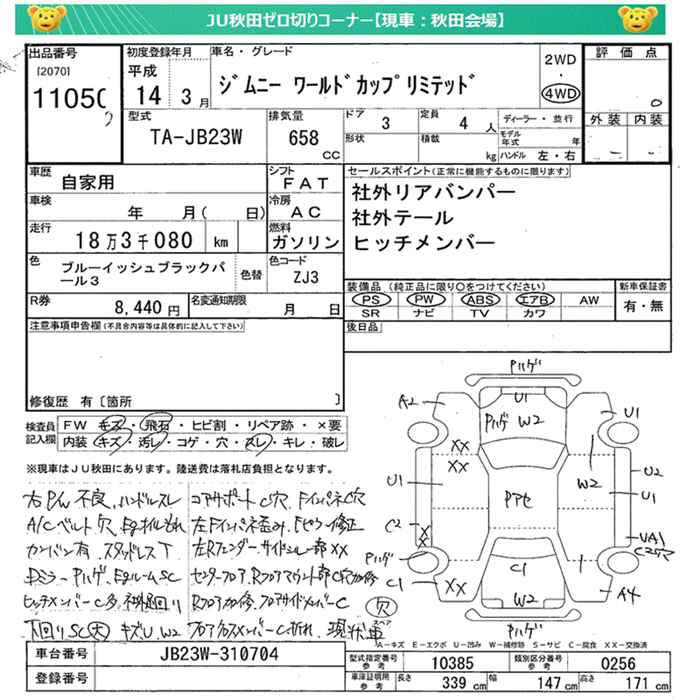 JU秋田ゼロ切りコーナー【現車：秋田会場】
出品番号
[2070]
1105
初度登録年月
平成
14 3月
車名・グレード
ジムニー ワールドカップリミテッド
2WD
・
4WD
評価点
0
外装 内装
型式
TA-JB23W
排気量
658
CC
ドア 3
定員 4 人
形状
積載
kg
ディーラー・並行
モデル年式 年
ハンドル 左・右
車歴
自家用
シフト
FAT
車検
年 月( 日)
冷房
AC
走行
18万3千080 km
燃料
ガソリン
色
ブルーイッシュブラックパール3
色替
色コード
ZJ3
R券
8,440円
名変通知期限
月 日
セールスポイント(正常に機能するものに限ります)
社外リアバンパー
社外テール
ヒッチメンバー
装備品 (純正品に限り○をつけてください)
PS PW ABS エアB AW
SR ナビ TV カワ
新車保証書
有・無
後日品
注意事項申告欄(不具合内容等は具体的に記入して下さい)
修復歴 有〔箇所 〕
検査員記入欄
FW キズ・飛石・ヒビ割・リペア跡・×要
内装 キズ・汚レ・コゲ・穴・スレ・キレ・破レ
※現車はJU秋田にあります。陸送費は落札店負担となります。
右P/W 不良、ハンドルスレ
A/Cベルト欠 Egオイルもれ
カンバン有 スタッドレスT
Dミラー Pハゲ、EgルームSC
ヒッチメンバーC多
下回りSC(大) キズU、W2
コアサポートC穴 FインパネC穴
左Fインパネ歪み、Fピラー修正
左Rフェンダー、サイドシル一部XX
センターフロア、Rフロアマウント部C穴
Rフロア フロアサイドメンバーC
フロアクロスメンバーC折れ 現状車
Pハゲ
U1
A2
Pハゲ W2
U1
XX
XX
W2
U1
Pアセ
U2
U1
C2
X
X
UA1
C2穴
Pハゲ
C1
C1
XX
W2
A4
欠
スペア
Pハゲ
A－キズ E－エクボ U－凹み W－補修跡 S－サビ C－腐食 XX－交換済
車台番号
JB23W-310704
登録番号
型式指定番号 参考
10385
類別区分番号 参考
0256
車庫証明用 参考
長さ 339 cm
幅 147 cm
高さ 171 cm